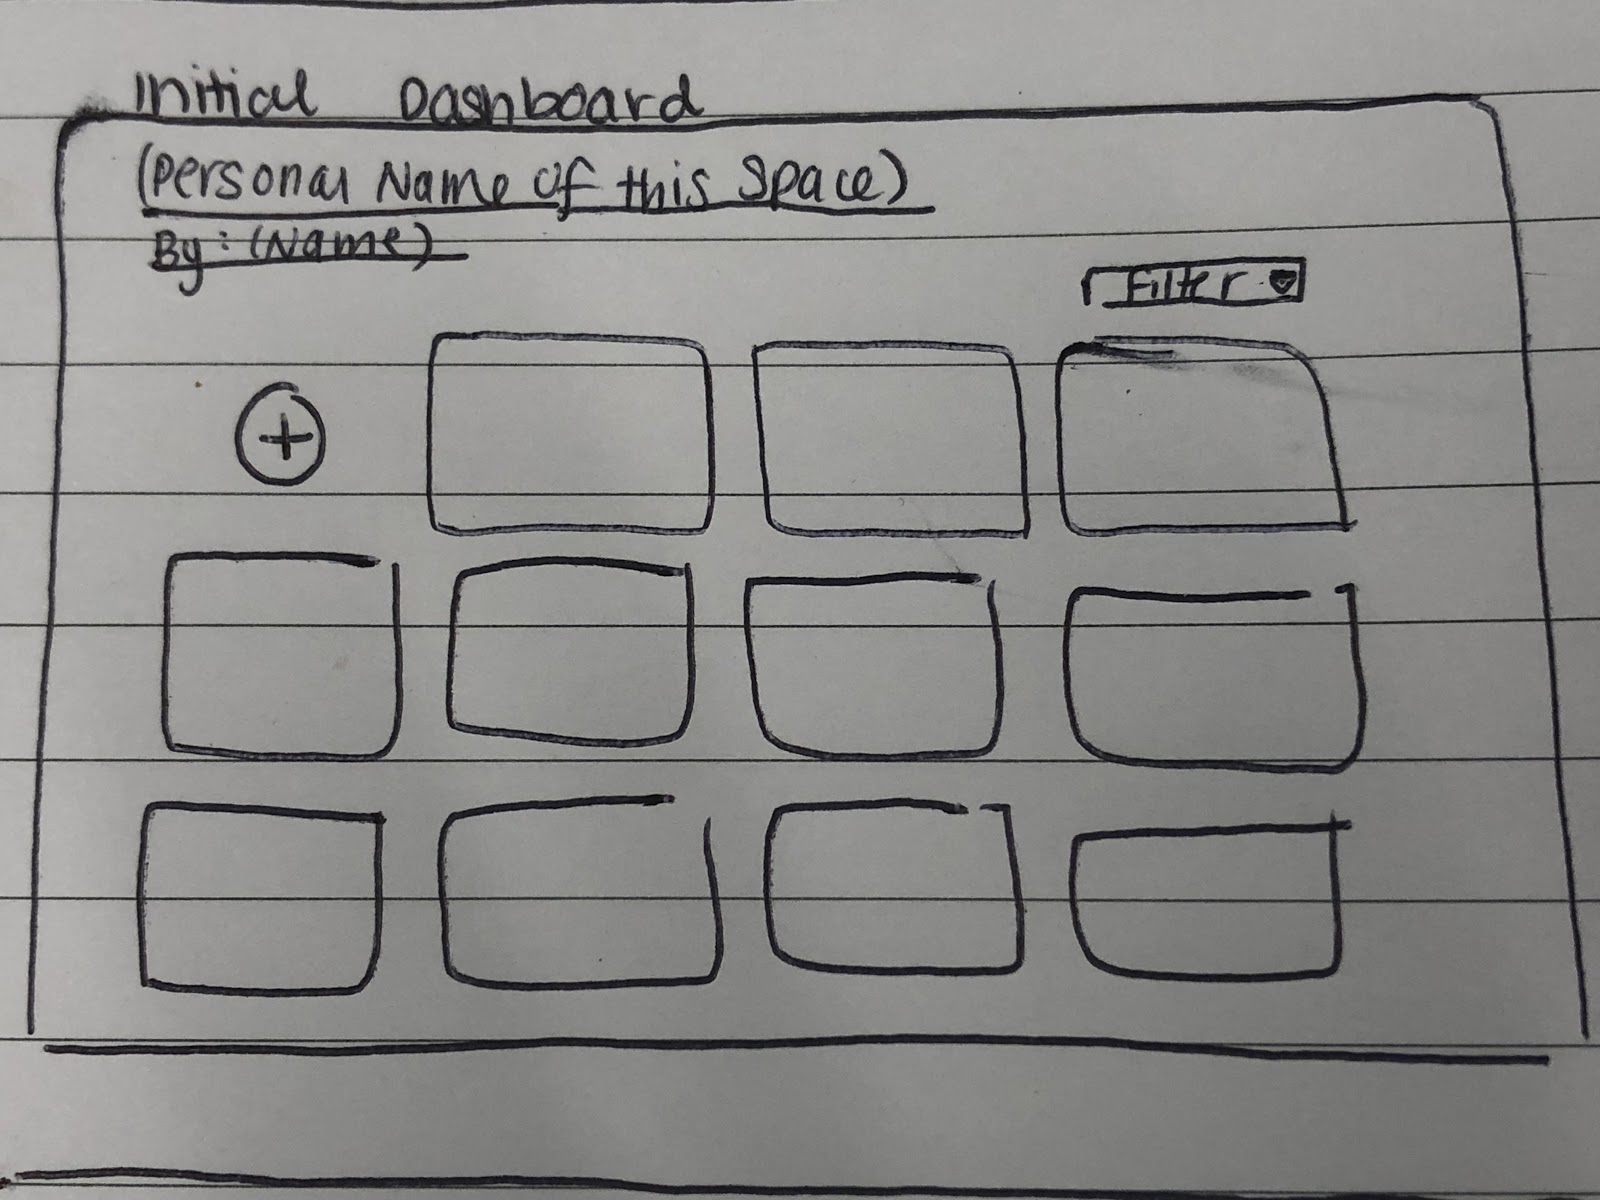 Initial Dashboard
(Personal Name of this Space)
By: (Name)
Filter
+